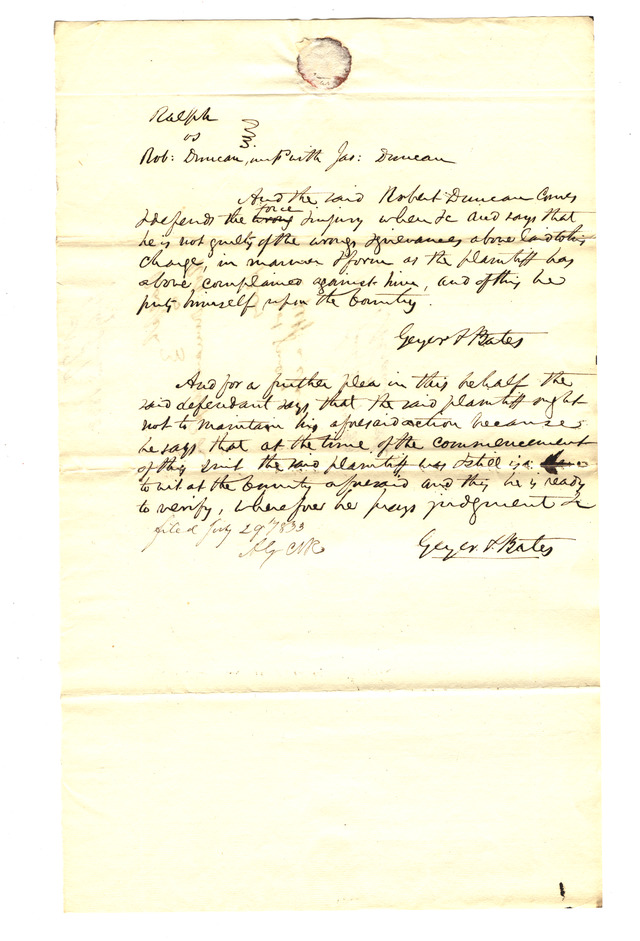 Ralph
vs
Rob: Duncan, imp with Jas: Duncan
And the said Robert Duncan Comes
& defends the force & injury when &c and says that
he is not guilty of the wrongs & grievances above laid to his
charge, in manner & form as the plaintiff has
above, complained against him, and of this he
puts himself upon the Country.
Geyer & Bates
And for a further plea in this behalf the
said defendant says that the said plaintiff ought
not to maintain his aforesaid action because
he says that at the time of the commencement
of this suit the said plaintiff was & still is a
to wit at the County aforesaid and this he is ready
to verify, wherefore he prays judgment &c
filed July 29 1833
Clk
Geyer & Bates